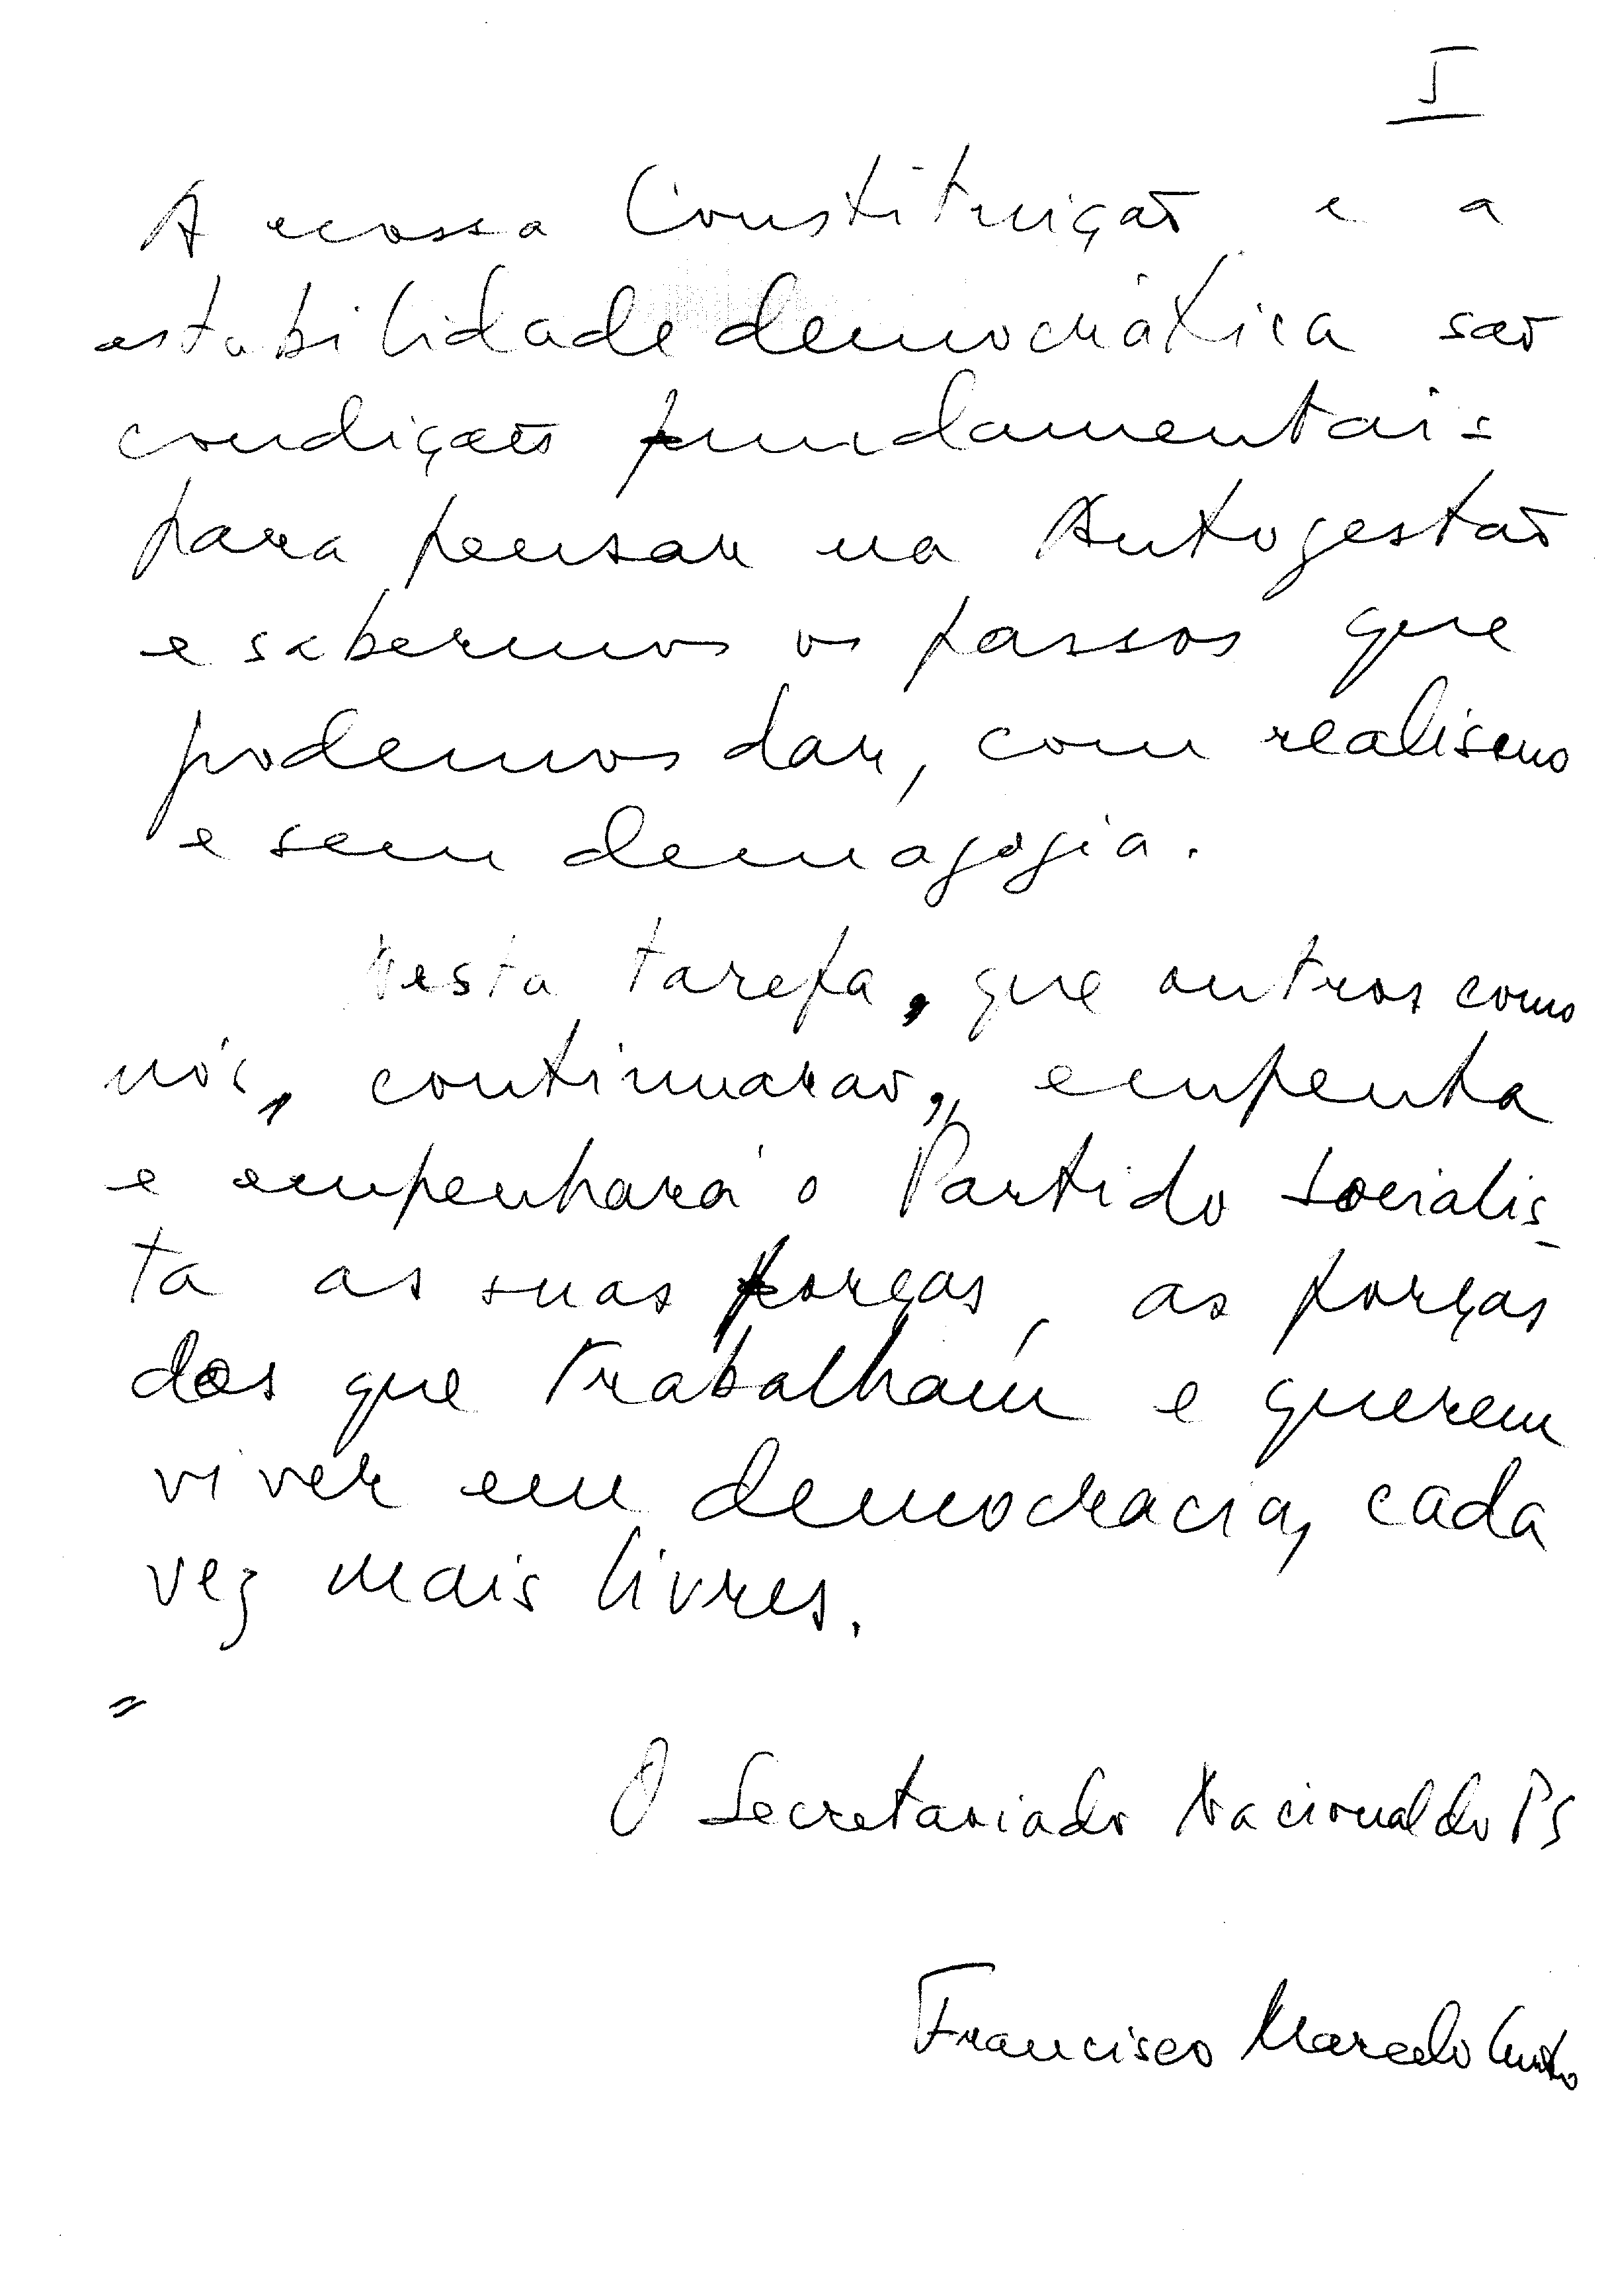 I
A nossa Constituição e a
estabilidade democrática são
condições fundamentais
para pensar na Autogestão
e sabermos os passos que
podemos dar, com realismo
e sem demagogia.
Nesta tarefa, que outros como
nós, continuarão, empenha
e empenhará o Partido Socialis-
ta as suas forças, as forças
dos que trabalham e querem
viver em democracia, cada
vez mais livres.
=
O Secretariado Nacional do PS
Francisco Marcelo Curto